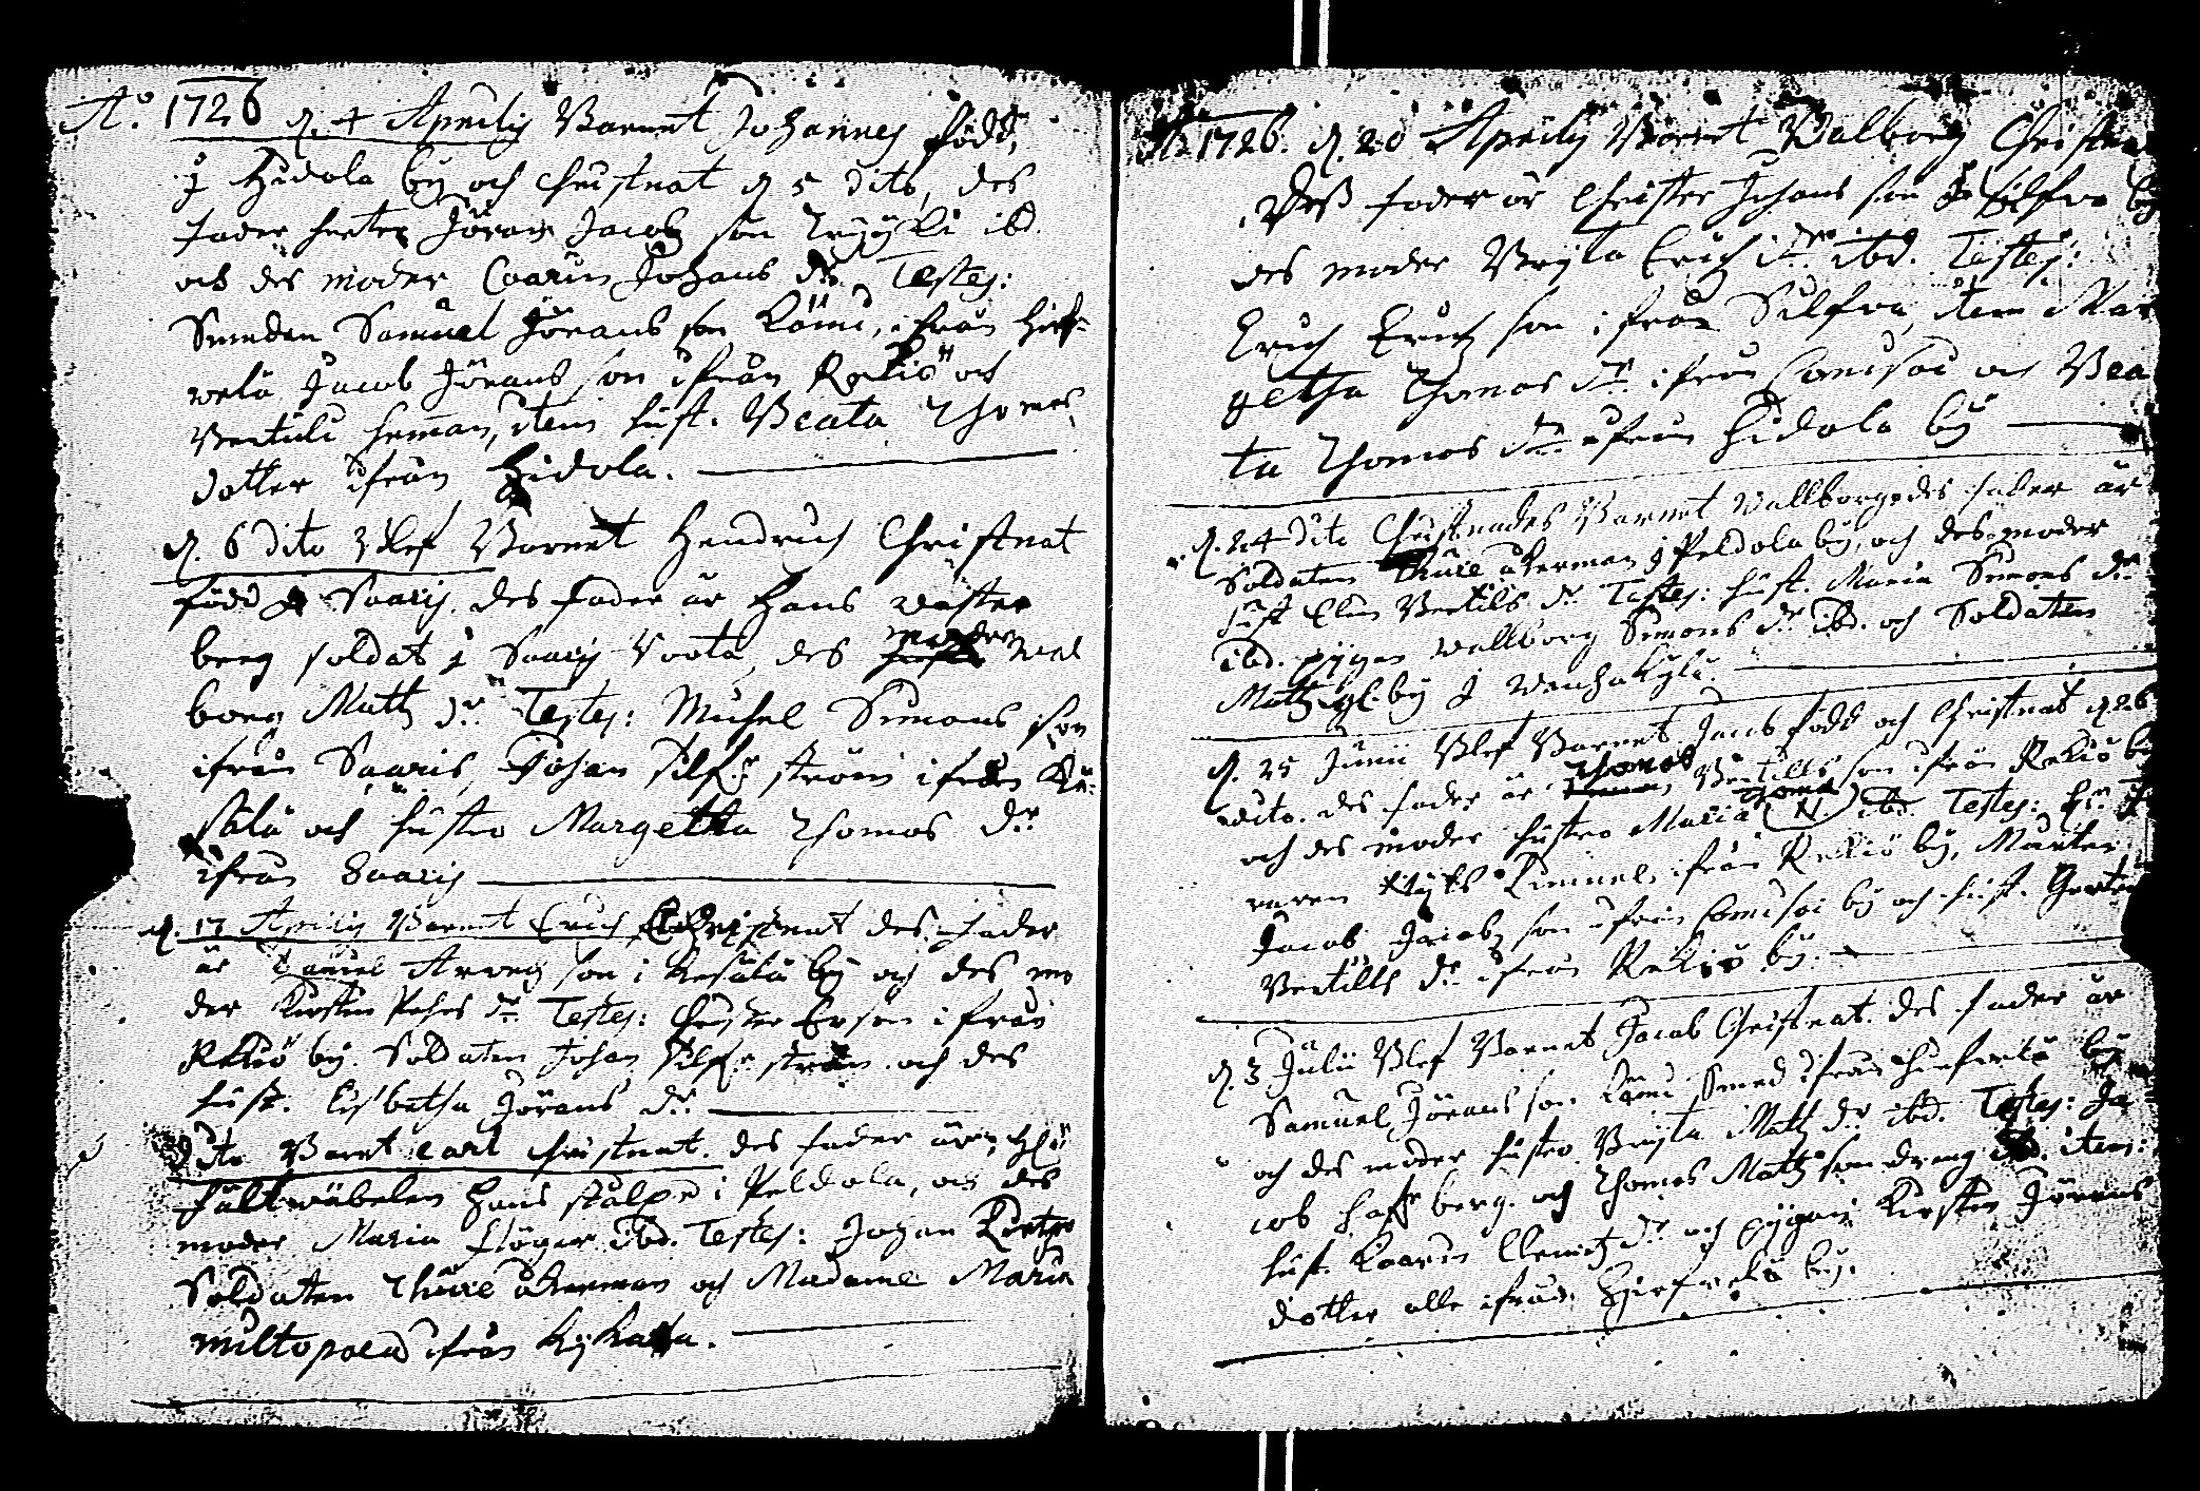 A:o 1726 d. 4 Aprilis Barnet Johannes född,
j Hidola by och christnat d 5 dito, des
fader heeter Jöran Jacobs son ibd.
och des moder Caarin Johans dr. Testes:
Smeden Samuel Jörans son Römi, ifrån Hirf-
welä Jacob Jörans son ifrån Rekiö och
Bertill heman, item hust. Beata Thomas
dotter ifrån Hidola.
d. 6 dito blef Barnet Hendrich Christnat
född j Saaris. des fader är Hans wäster
berg soldat j Saaris Roota, des moder Wal
borg Matts dr. Testes: Michel Simons son
ifrån Saaris, Johan Silfr ström ifrån Ke-
sälä och hustro Margetta Thomas dr
ifrån Saaris
d. 17 Aprilis Barnet Erich Christnat des fader
är Daniel Arweds son i Kesälä by och des mo
der Kirstin Pehrs dr Testes: Christer Ersson ifrån
Rekiö by. Soldaten Johan Silfr ström och des
hust. Lisbetha Jörans dr.
Dito Barnt Carl christnat. des fader är
fältwäbelen Hans stålpe i Peldola, och des
moder Maria flöger ibd. Testes: Johan
Soldaten Thure åkerman och Madame Maria
miltopaeus ifrån Kykatta.
Ao 1726. d. 20 Aprilis Barnet Walborg Christna
Dess fader är Christer Johans son j Silfva by
des moder Bryta Erichs dr. ibd. Testes:
Erich Erichs son ifrån Silfva, item Mar
getha Thomas dr. ifrån och Bea
ta Thomas dr. ifrån Hidola by
d. 24 dito Christnades Barnet Wallborg des fader är
Soldaten Thure åkerman j Peldola by, och des moder
hust Elin Bertils dr. Testes: hust. Maria Simons dr
ibd. pigan wallborg Simons dr ibd. och Soldaten
Matts by j wanhakylä.
d. 25 Junii Blef Barnet Jacob född och Christnat d 26
dito. des fader är Thomas Bertills son ifrån Rekiö by
och des moder hustro Maria Thoma (N.) ibd. Testes:
ifrån Rekiö by, Mårten
Jacob Jacobs son ifrån by och hust.
Bertills dr ifrån Rekiö by.
d. 3 Julii Blef Barnet Jacob Christnat. des fader är
Samuel Jörans son Römi Smed ifrån by
och des moder hustro Bryta Matts dr ibd. Testes: Ja
cob berg. och Thomas Matts son dreng ibd. item:
hust. Kaarin Clemets dr och pigan Kirstin Jörans
dotter alle ifrån Hirfwelä by.